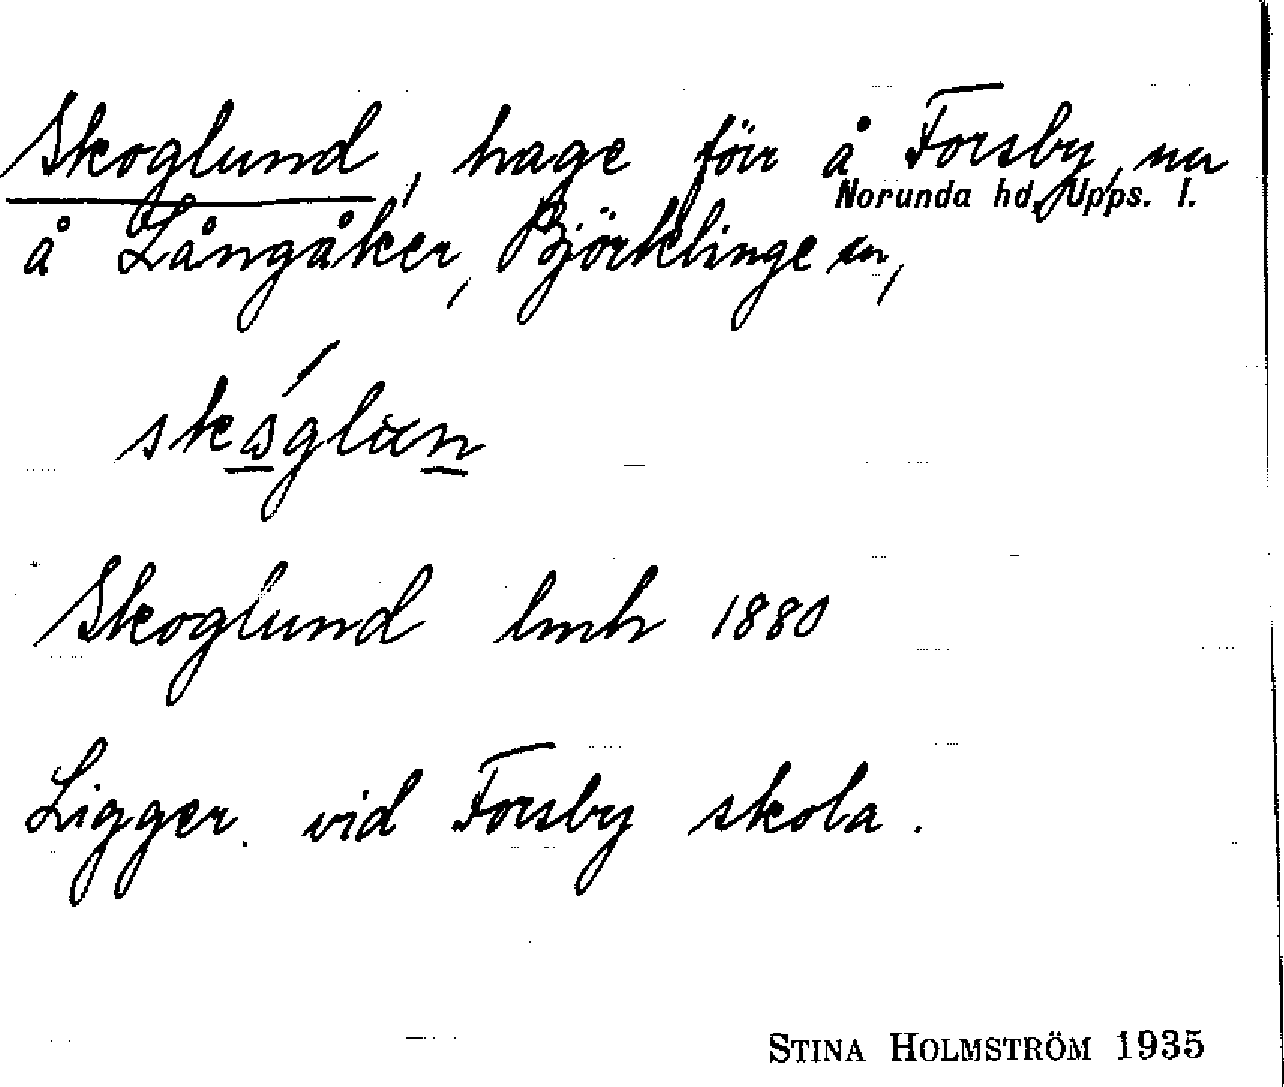 Skoglund, hage förr å Forsby, nu
Norunda hd, Upps. l.
å Långåker, Björklinge sn,
Skoglund lmh 1880
Ligger vid Forsby skola.
STINA HOLMSTRÖM 1935